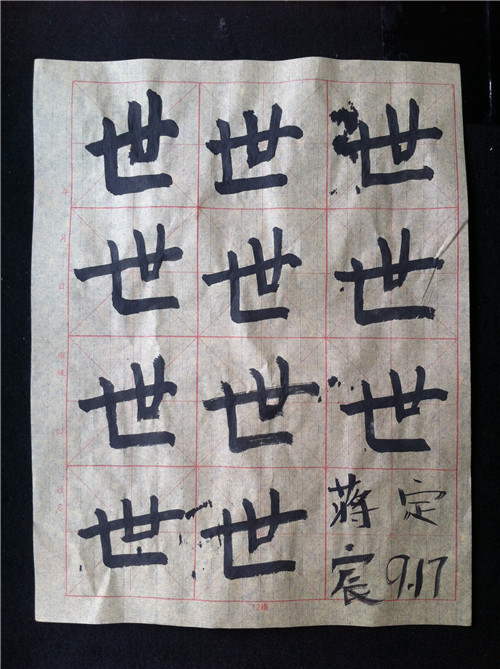 世世世
世世世
世世世
世世
蒋定
宸 9.17